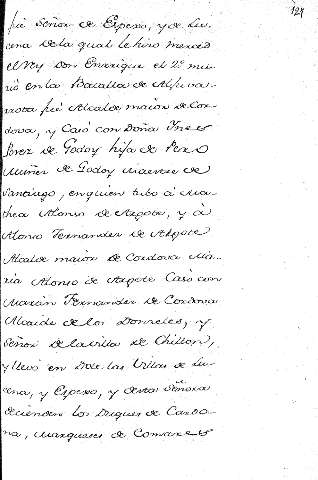 127
fué Señor de Espexo, y de Lu-
cena de la qual le hizo merced
el Rey Don Enrrique el 2º mu-
rió en la Batalla de Aljuvar-
rota fué Alcalde maior de Cor-
dova, y Casó con Doña Ines
Perez de Godoy hija de Pero
Muñiz de Godoy Maestre de
Santiago, en quien tubo á
Alonso de Argote, y á
Alonso Fernandez de Argote
Alcalde maior de Cordova Ma-
ria Alonso de Argote Casó con
Martin Fernandez de Cordova
Alcaide de los Donzeles, y
Señor de la villa de Chillon,
y llevó en Dote las Villas de Lu-
cena, y Espexo, y de esta Señora
decienden los Duques de Cardo-
na, Marqueses de Comares